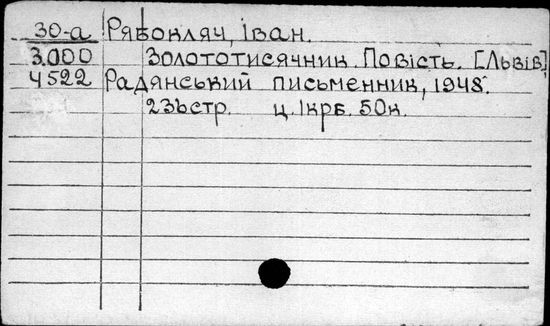 30-а Рябокляч, Іван.
3.000 Золототисячник. Повість. [Львів]
4522 Радянський письменник, 1948.
236стр. ц.1крб. 50к.